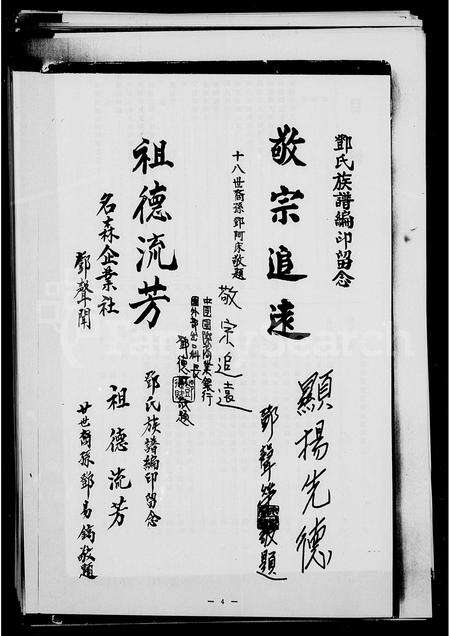 鄧氏族譜編印留念
敬宗追遠
十八世裔孫鄧阿床敬題
顯揚先德
鄧聲
敬題
敬宗追遠
中國國際商業銀行
國外部出口科長
鄧德
敬題
祖德流芳
名森企業社
鄧聲開
鄧氏族譜編印留念
祖德流芳
廿世裔孫鄧易鎬敬題
- 4 -